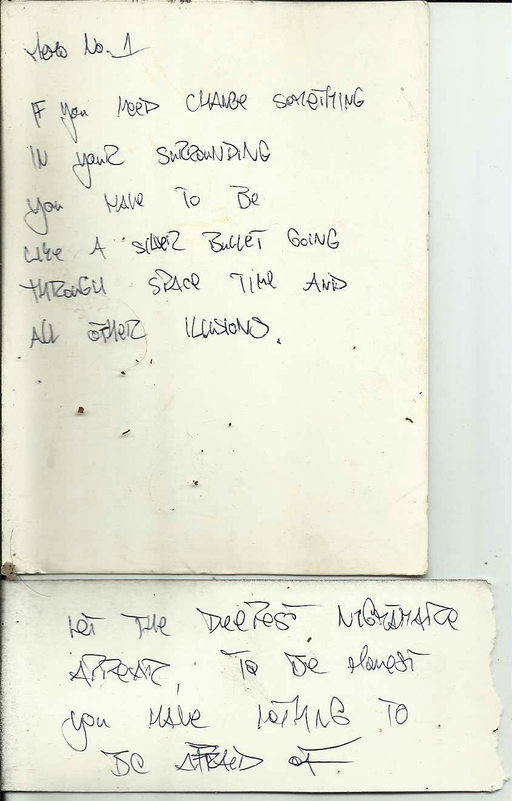 Memo No. 1
IF you NEED CHANGE SOMETHING
IN youR SuRROuNDING
you HAVE TO BE
LIKE A SILVER BuLLET GOING
THROuGH SPACE TIME AND
ALL OTHER ILLUSIONS.
LET THE DEEPEST NIGHTMARE
APPEAR, TO BE HONEST
you HAVE NOTHING TO
BE AFRAID OF